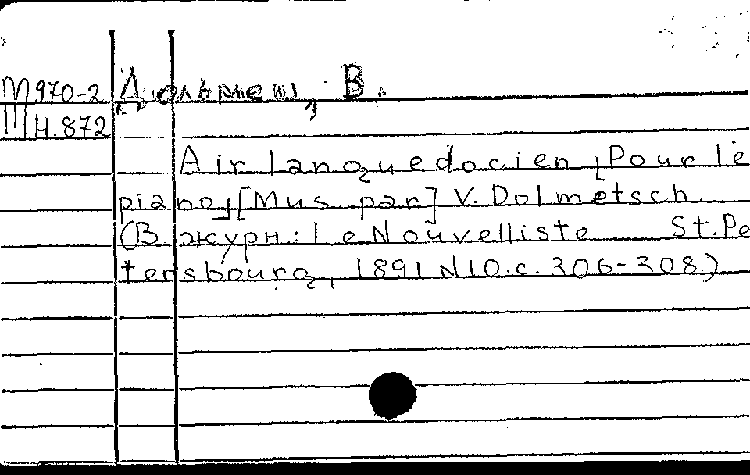 М970-2 Дольмеш, В.
Н.872
Air languedocien [Pour le
piano] [Mus. par] V. Dolmetsch
(В журн.: le Nouvelliste St. Pe
tersbourg, 1891 N10. с. 306-308)